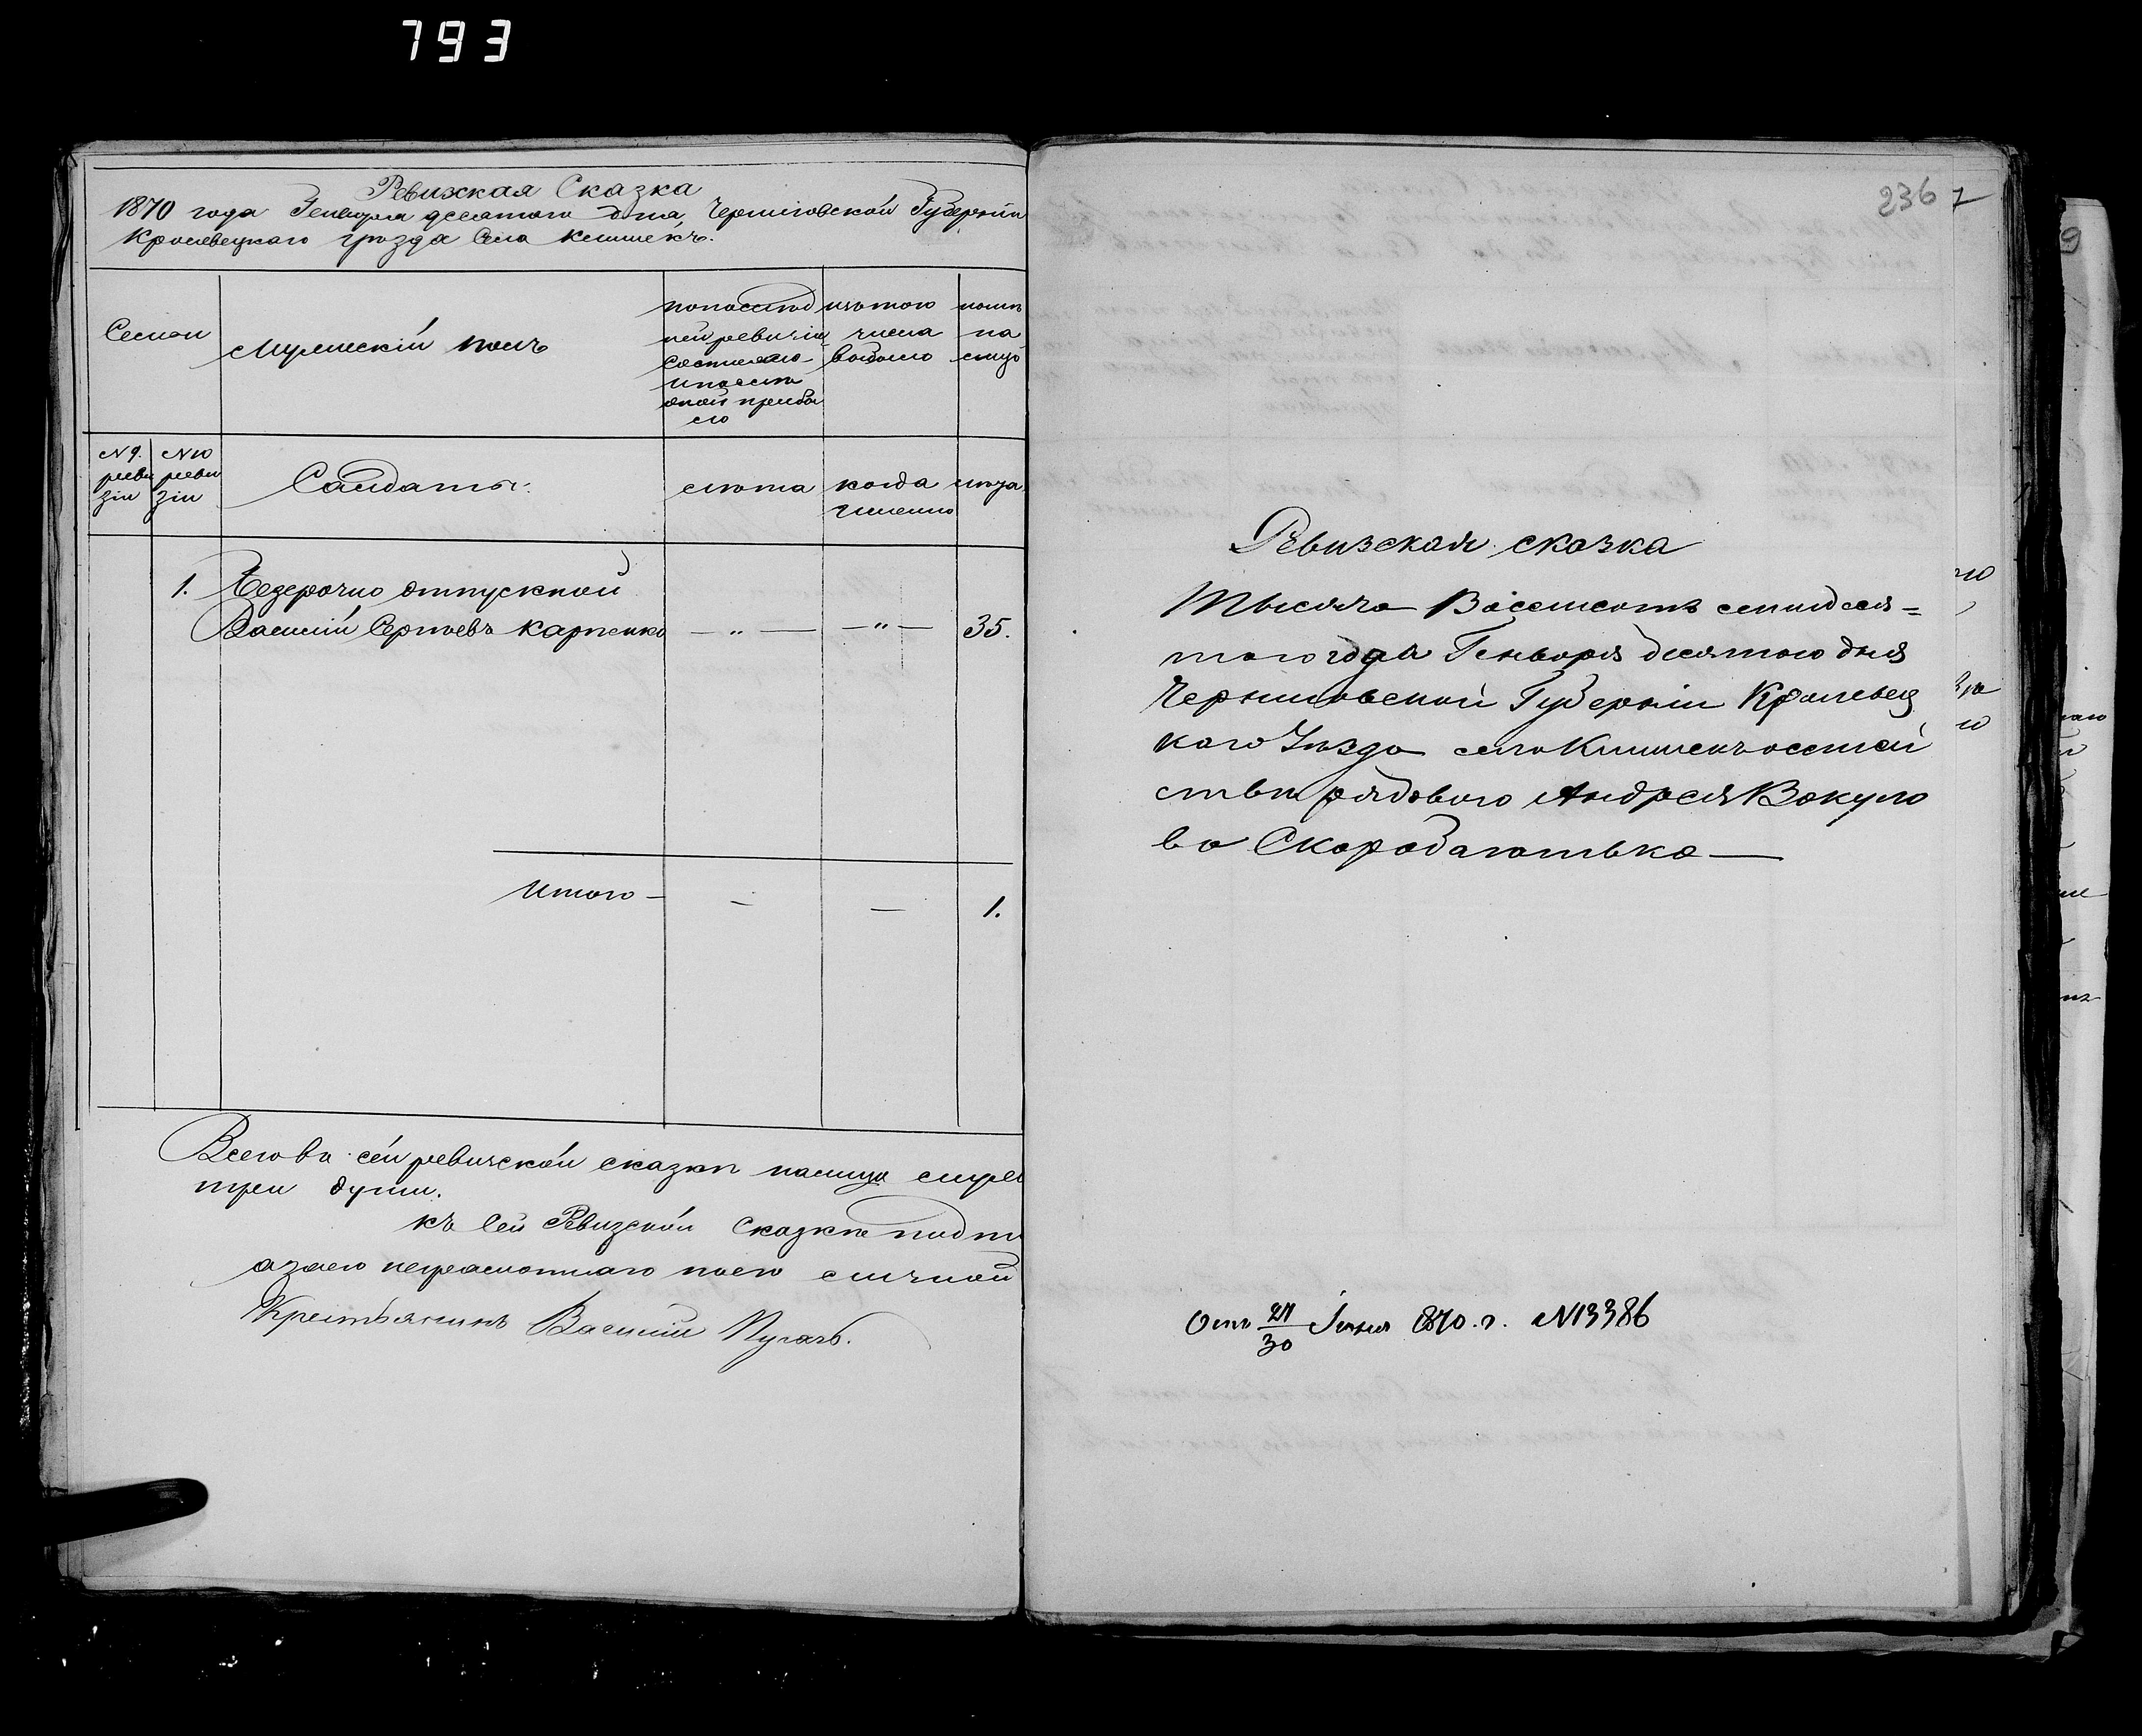 793
Ревижская Сказка
1870 года Генваря десятого дня, Черниговской Губерніи
Кролевецкаго уѣзда Села Клишекъ.
Семьи
Мужескій полъ
попослѣд
ней ревизіи
состояло
и послѣ
оной прибы
ло
изътого
числа
выбыло
нынѣ
на
лицо
№ 9.
реви
зіи
№ 10
реви
зіи
Салдаты.
лѣта
когда
именно
лѣта
1. Безсрочно отпускной
Василій Сергѣевъ Карпенко — „ — — „ — 35.
Итого — — — 1.
Всего въ сей ревизской сказкѣ налицо
три души.
къ Сей Ревизской Сказкѣ
неграмотнаго
Крестьянинъ Василій Пугачъ.
236 7
Ревизская сказка
Тысяча Восемсотъ семидеся=
того года Генворя десятого дня
Черниговской Губерніи Кролевец
кого Уѣзда села Клишекъ осемей
ствѣ рядового Андрея Вакуло
ва Скоробагатька —
Отъ 21/30 Іюня 1870. г. №13386